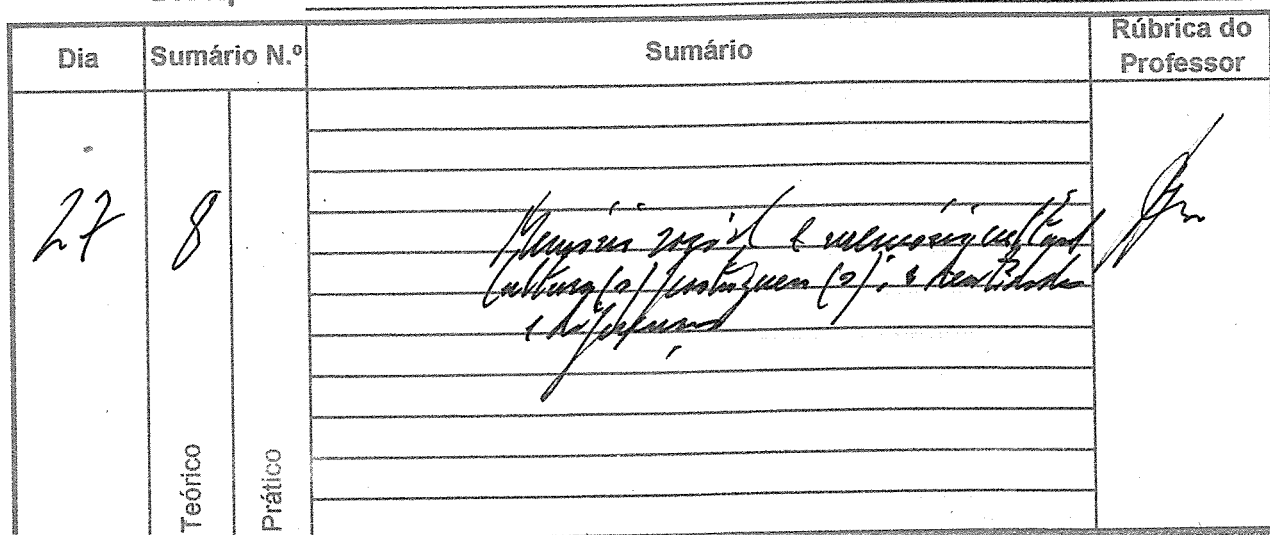 Dia Sumário N.º Sumário Rúbrica do Professor
27 8
Memória social e memória cultural
Cultura(s) portuguesa(s); identidades
e diferenças
Teórico Prático